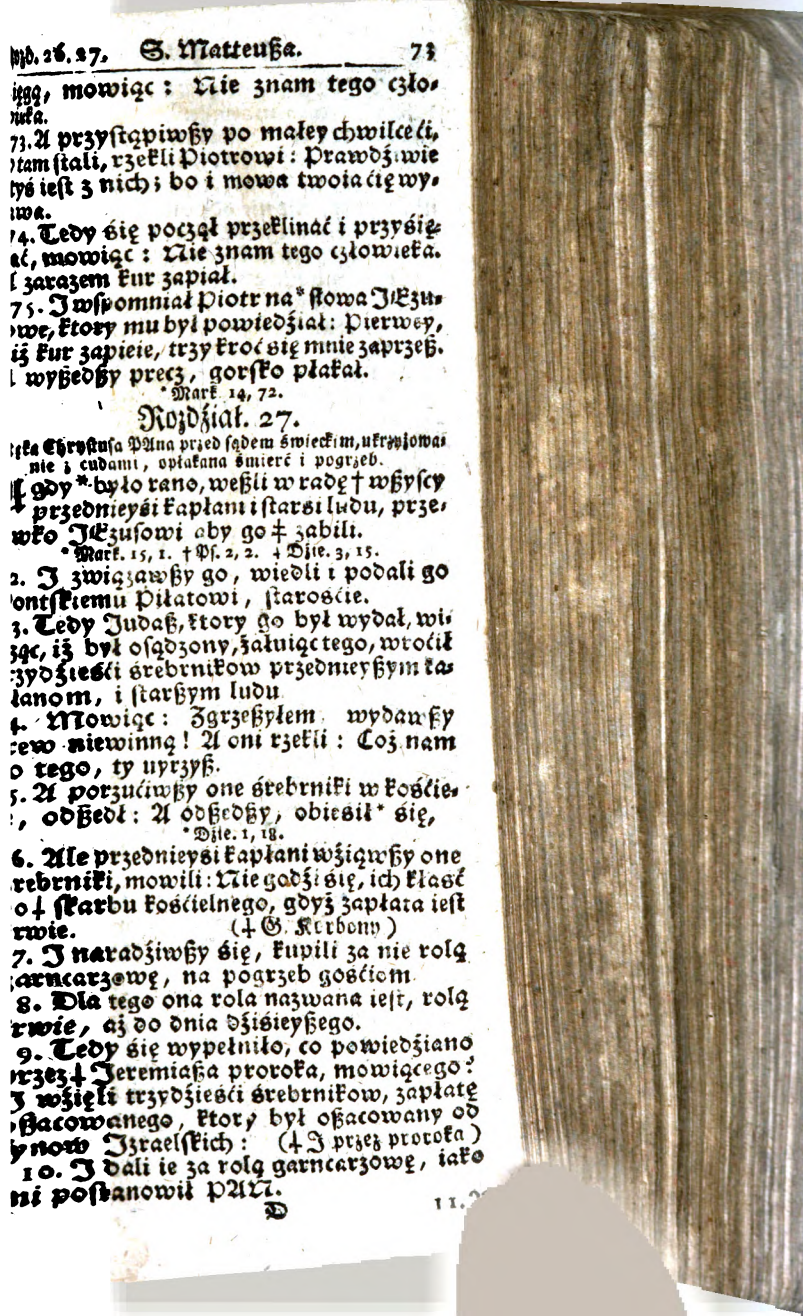 26.27. S. Matteußa. 73
mowiąc: Nie znam tego czło-
73. A przystąpiwßy po małey chwilce ći,
tam stali, rzekli Piotrowi: Prawdź wie
tyś iest z nich; bo i mowa twoia ćię wy-
Tedy się począł przeklinać i przysię-
mowiąc: Nie znam tego człowieka.
zarazem kur zapiał.
75. I wspomniał Piotr na * słowa JEzu-
ktory mu był powiedźiał: Pierwey,
kur zapieie, trzy kroć się mnie zaprzeß.
wyßedßy precz, gorsko płakał.
* Mark 14, 72.
Rozdźiał. 27.
Chrystusa PAna przed sądem świeckim, ukrzyżowa-
nie z cudami, opłakana śmierć i pogrzeb.
gdy * było rano, weßli w radę † wßyscy
przednieyśi kapłani i starśi ludu, prze-
JEzusowi aby go ‡ zabili.
* Mark. 15, 1. † Ps. 2, 2. ‡ Dźie. 3, 15.
2. I związawßy go, wiedli i podali go
Piłatowi, starośćie.
3. Tedy Judaß, ktory go był wydał, wi-
iż był osądzony, żałuiąc tego, wroćił
śrebrnikow przednieyßym ka-
i starßym ludu
Mowiąc: Zgrzeßyłem wydawßy
niewinną! A oni rzekli: Coż nam
tego, ty uyrzyß.
5. A porzućiwßy one śrebrniki w kośćie-
odßedł: A odßedßy, obieśił* się,
* Dźie. 1, 18.
6. Ale przednieyśi kapłani wźiąwßy one
mowili: Nie godźi się, ich kłaść
‡ skarbu kośćielnego, gdyż zapłata iest
(‡ G. Korbony)
7. I naradźiwßy się, kupili za nie rolą
na pogrzeb gośćiom
8. Dla tego ona rola nazwana iest, rolą
aż do dnia dźiśieyßego.
9. Tedy się wypełniło, co powiedźiano
‡ Jeremiaßa proroka, mowiącego:
I wźięli trzydźieśći śrebrnikow, zapłatę
ktory był oßacowany od
Izraelskich: (‡ I przez proroka)
10. I dali ie za rolą garncarzowę, iako
postanowił PAN.
D 11.